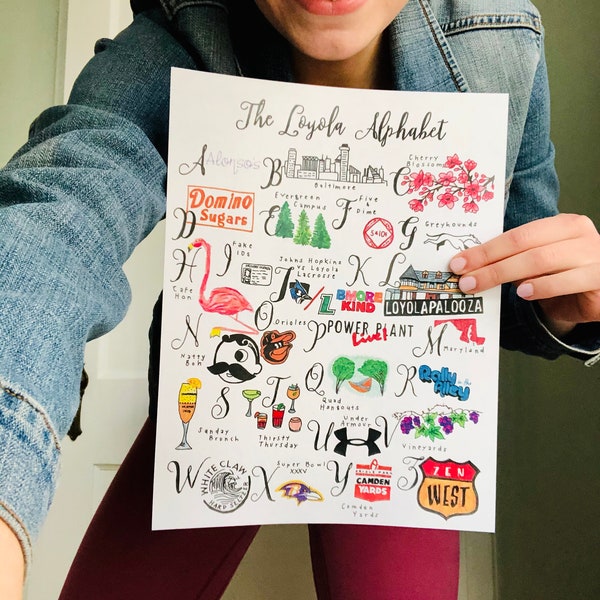 The Loyola Alphabet
A Alonso's
B
Baltimore
Cherry
Blossom
C
D
Domino
Sugars
Evergreen
Campus
E
Five
&
Dime
F
5&10¢
Greyhounds
G
H
Cafe
Hon
I
Fake
IDs
Johns Hopkins
vs Loyola
Lacrosse
J
L
K
BMORE
KIND
L
LOYOLAPALOOZA
M
Maryland
N
Natty
Boh
O
Orioles
P
POWER PLANT
Live!
Q
Quad
Hangouts
R
Rally
in the
Alley
S
Sunday
Brunch
T
Thirsty
Thursday
U
Under
Armour
V
Vineyards
W
WHITE CLAW
HARD SELTZER
X
Super Bowl
XXXV
Y
CAMDEN
YARDS
Camden
Yards
Z
ZEN
WEST